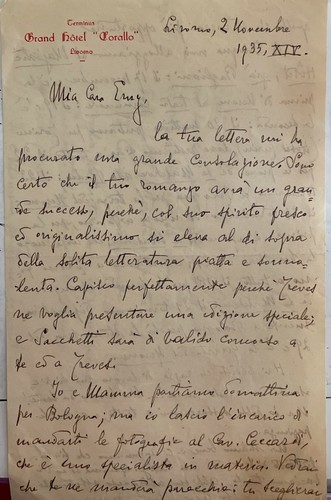 Terminus
Grand Hôtel "Corallo"
Livorno
Livorno, 2 Novembre
1935, XIV.
Mia Cara Emy,
la tua lettera mi ha
procurato una grande consolazione. Sono
certo che il tuo romanzo avrà un gran-
de successo, perché, col suo spirito fresco
ed originalissimo si eleva al di sopra
della solita letteratura piatta e sonno-
lenta. Capisco perfettamente perché Treves
ne voglia presentare una edizione speciale;
e Sacchetti sarà di valido concorso a
te ed a Treves.
Io e Mamma partiamo domattina
per Bologna; ma io lascio l'incarico di
mandarti le fotografie al Cav. Ceccardi,
che è uno specialista in materia. Vedrai
che te ne manderà parecchie: tu sceglierai